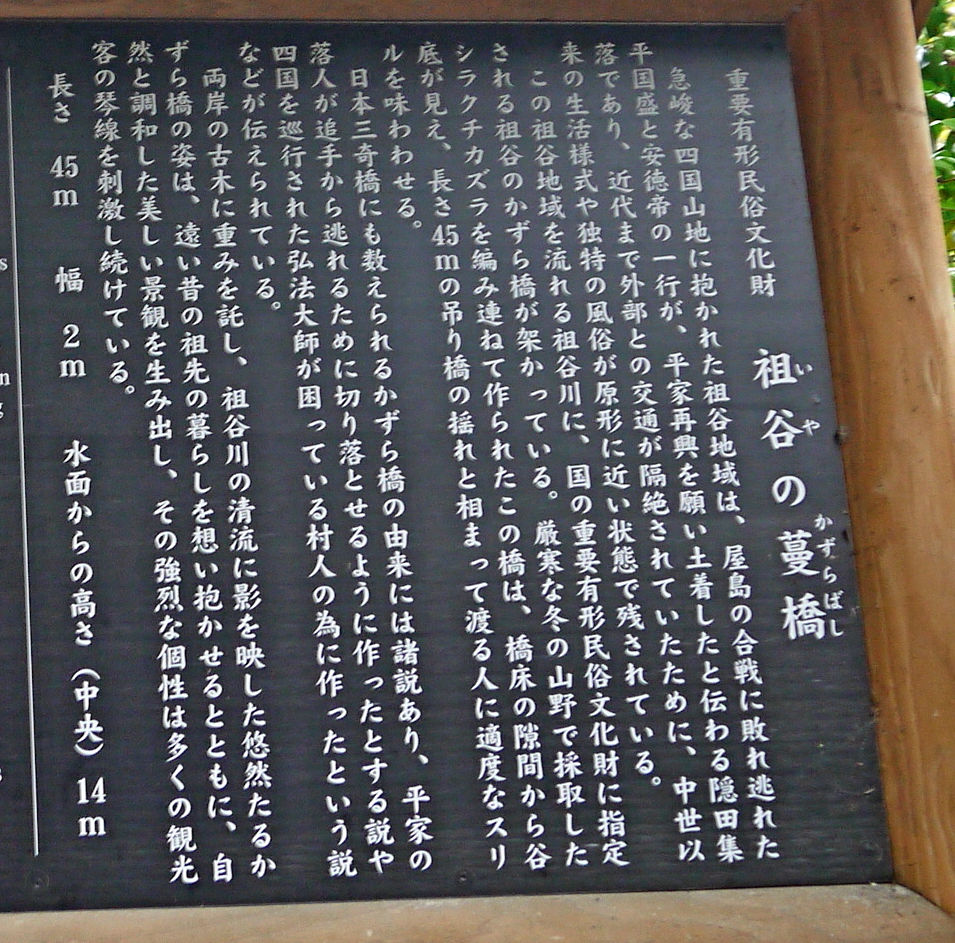 重要有形民俗文化財
祖谷の蔓橋
いや
かずらばし
急峻な四国山地に抱かれた祖谷地域は、屋島の合戦に敗れ逃れた
平国盛と安徳帝の一行が、平家再興を願い土着したと伝わる隠田集
落であり、近代まで外部との交通が隔絶されていたために、中世以
来の生活様式や独特の風俗が原形に近い状態で残されている。
この祖谷地域を流れる祖谷川に、国の重要有形民俗文化財に指定
される祖谷のかずら橋が架かっている。厳寒な冬の山野で採取した
シラクチカズラを編み連ねて作られたこの橋は、橋床の隙間から谷
底が見え、長さ45mの吊り橋の揺れと相まって渡る人に適度なスリ
ルを味わわせる。
日本三奇橋にも数えられるかずら橋の由来には諸説あり、平家の
落人が追手から逃れるために切り落とせるように作ったとする説や
四国を巡行された弘法大師が困っている村人の為に作ったという説
などが伝えられている。
両岸の古木に重みを託し、祖谷川の清流に影を映した悠然たるか
ずら橋の姿は、遠い昔の祖先の暮らしを想い抱かせるとともに、自
然と調和した美しい景観を生み出し、その強烈な個性は多くの観光
客の琴線を刺激し続けている。
長さ 45m 幅 2m 水面からの高さ（中央）14m